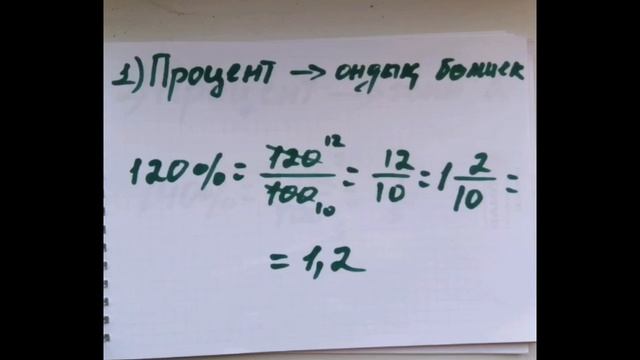 1) Процент → ондық бөлшек
120% = 120/100 12 10 = 12/10 = 1 2/10 =
= 1,2